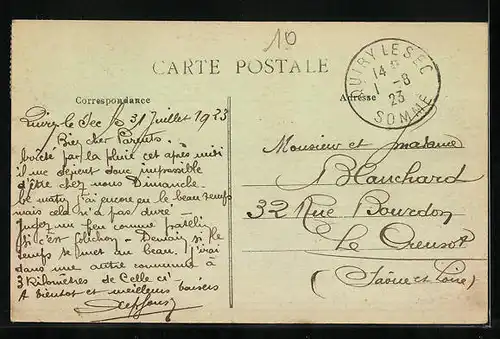 10
CARTE POSTALE
Correspondance
Adresse
QUIRY LE SEC
14
1 - 8
23
SOMME
Quiry-le-Sec le 31 Juillet 1923
Bien cher Parents.
par la pluie cet après midi
il me devient donc impossible
d'être chez nous Dimanche.
Ce matin j'ai encore eu le beau temps
mais cela n'a pas duré
Jugez un peu comme
si c'est folichon - Demain si le
temps se met au beau. J'irai
dans une autre commune à
3 Kilomètres de Celle ci
A bientôt et meilleurs baisers
Monsieur et madame
Blanchard
32 Rue Bourdon
Le Creusot
(Saône et Loire)